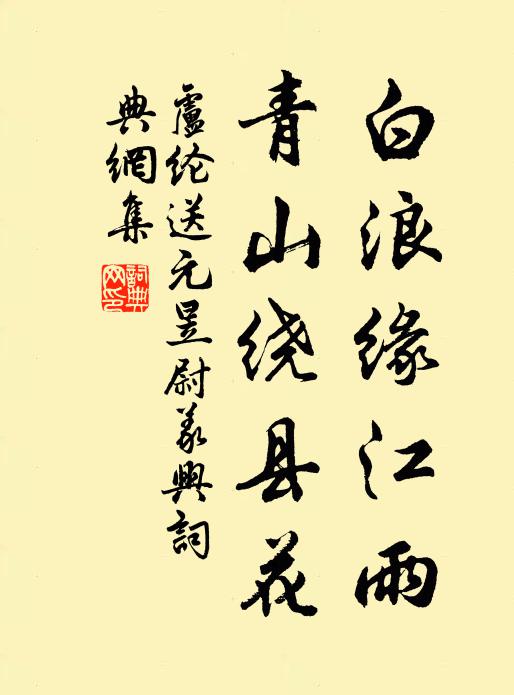 白浪缘江雨
青山绕县花
盧纶送元昱尉義興詞
典網集
詞典网印